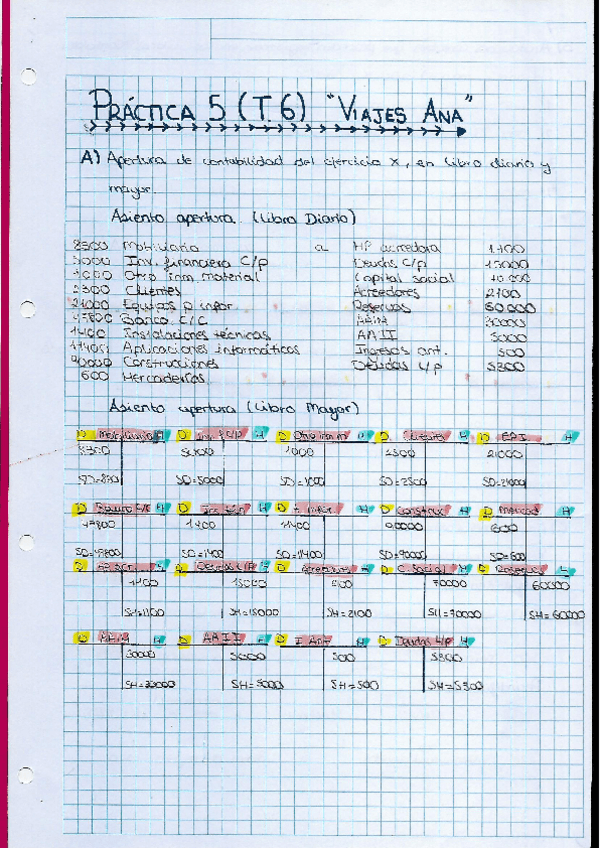 PRÁCTICA 5 (T.6) "VIAJES ANA"
A) Apertura de contabilidad del ejercicio X, en libro diario y
mayor.
Asiento apertura. (Libro Diario)
Mobiliario a HP acreedora 1.100
5000 Inv. financiera C/p Deudas C/p 15000
1000 Otro inm. material Capital social
2500 Clientes Acreedores 2100
21000 Equipos p infor. Reservas 60.000
47800 Banco C/C AAIM 30000
1400 Instalaciones técnicas AAII 5000
Aplicaciones informáticas Ingresos ant. 500
90000 Construcciones Deudas L/p 5300
600 Mercaderías
Asiento apertura (Libro Mayor)
D Mobiliario H D Inv. C/P H D Otro inm H D Clientes H D EPI H
5000 1000 2500 21000
SD=5000 SD=1000 SD=2500 SD=21000
D Banco C/C H D Ins. técn H D A. infor H D Construc H D Mercad H
47800 1400 11400 90000 600
SD=47800 SD=1400 SD=11400 SD=90000 SD=600
D H D Deudas C/P H D Acreedores H D C. Social H D Reservas H
1100 15000 70000 60000
SH=1100 SH=15000 SH=2100 SH=70000 SH=60000
D AAIM H D AAII H D I. Ant H D Deudas L/p H
30000 5000 500 5300
SH=30000 SH=5000 SH=500 SH=5300